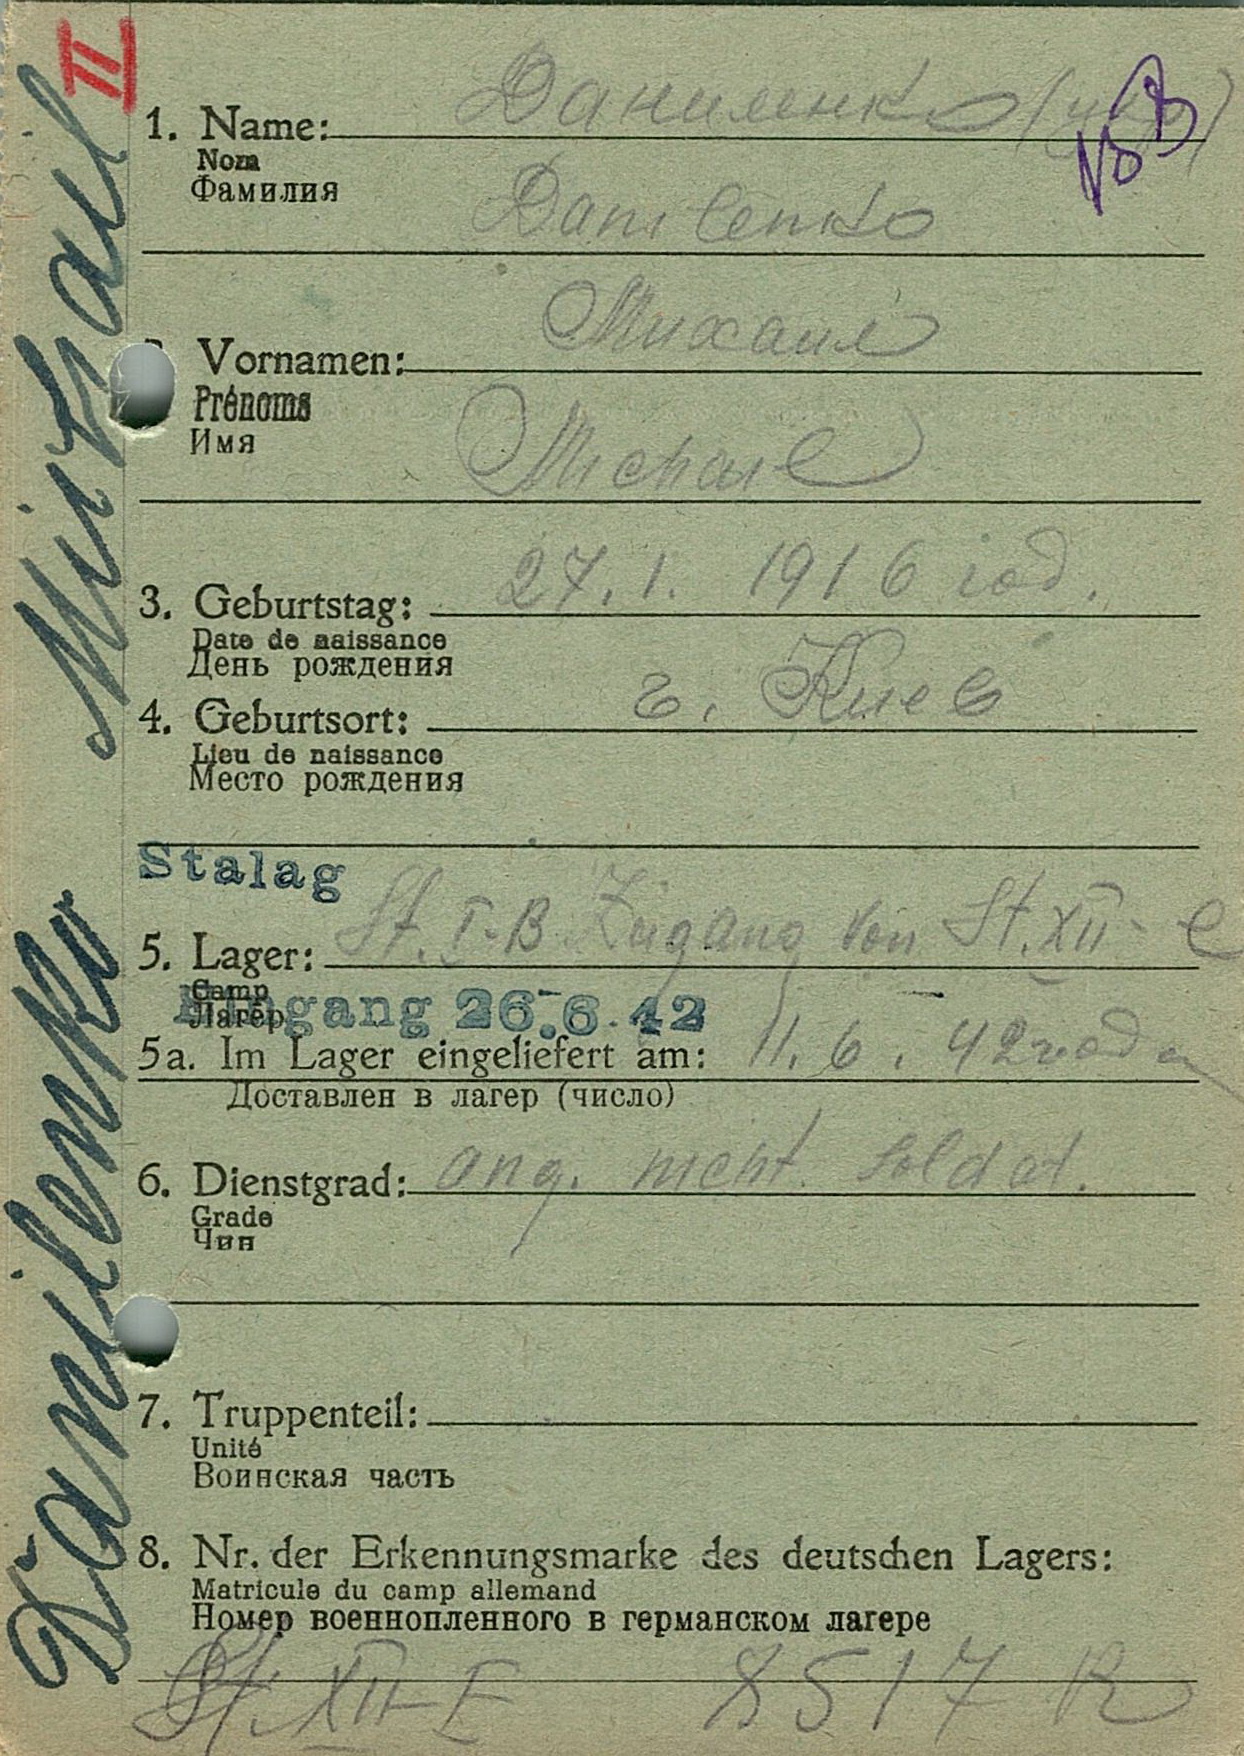 II
Danilenko Michail
1. Name: Даниленко (укр)
Nom
Фамилия
Danilenko
Vornamen: Михаил
Prénoms
Имя
Michail
3. Geburtstag: 27.1. 1916 год.
Date de naissance
День рождения
4. Geburtsort: г. Киев
Lieu de naissance
Место рождения
Stalag
5. Lager: St. I-B Zugang von St. XII-
Camp
Лагерь
Eingang 26.6.42
5a. Im Lager eingeliefert am: 11.6.42 года
Доставлен в лагер (число)
6. Dienstgrad: ang. nicht. Soldat.
Grade
Чин
7. Truppenteil:
Unité
Воинская часть
8. Nr. der Erkennungsmarke des deutschen Lagers:
Matricule du camp allemand
Номер военнопленного в германском лагере
St. XII-F 8517 R